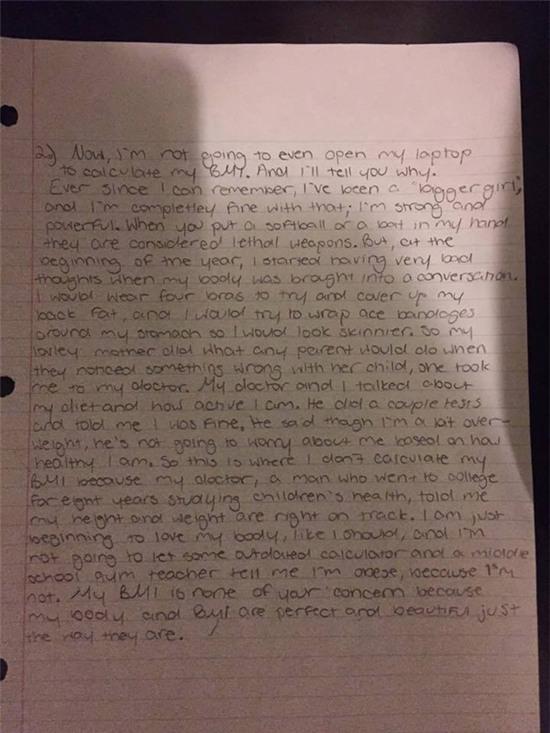 2.) Now, I'm not going to even open my laptop
to calculate my BMI. And I'll tell you why.
Ever since I can remember, I've been a "bigger girl",
and I'm completley fine with that; I'm strong and
powerful. When you put a softball or a bat in my hand
they are considered lethal weapons. But, at the
beginning of the year, I started having very bad
thoughts when my body was brought into a conversation.
I would wear four bras to try and cover up my
back fat, and I would try to wrap ace bandages
around my stomach so I would look skinnier. So my
lovley mother did what any parent would do when
they noticed something wrong with her child, she took
me to my doctor. My doctor and I talked about
my diet and how active I am. He did a couple tests
and told me I was fine. He said though I'm a bit over-
weight, he's not going to worry about me based on how
healthy I am. So this is where I don't calculate my
BMI because my doctor, a man who went to college
for eight years studying children's health, told me
my height and weight are right on track. I am just
beginning to love my body, like I should, and I'm
not going to let some outdated calculator and a middle
school gym teacher tell me I'm obese, because I'm
not. My BMI is none of your concern because
my body and BMI are perfect and beautiful just
the way they are.